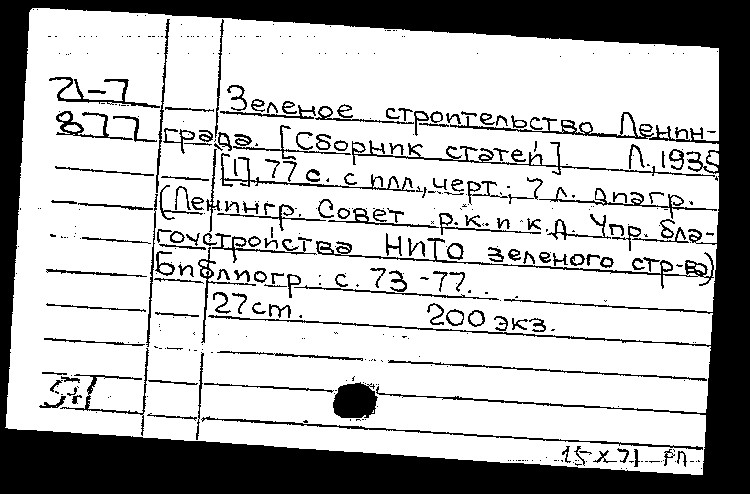 Д-7
877
Зеленое строительство Ленин-
града. [Сборник статей]. Л., 1935
[1], 77 с. с илл., черт.; 7 л. диагр.
(Ленингр. Совет р.к.и к.д. Упр. бла-
гоустройства НИТО зеленого стр-ва)
Библиогр.: с. 73-77.
27cm. 200 экз.
15 X 71 РП